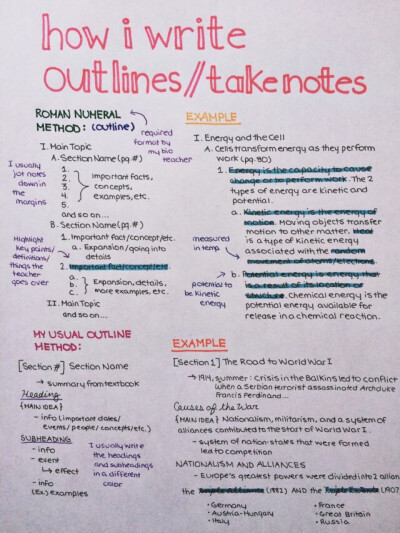 how i write
outlines//take notes
ROMAN NUMERAL
METHOD: (outline)
required
format by
my bio
teacher
I. Main Topic
A. Section Name (pg. #)
1.
2.
3.
4.
5.
important facts,
concepts,
examples, etc.
and so on...
I usually
jot notes
down in
the
margins
B. Section Name (pg. #)
1. Important fact/concept/etc.
a. Expansion/going into
details
2. Important fact/concept/etc
a.
b.
c.
Expansion, details,
more examples, etc.
Highlight
key points/
definitions/
things the
teacher
goes over
II. Main Topic
and so on...
EXAMPLE
I. Energy and the Cell
A. Cells transform energy as they perform
work (pg. 80)
1. Energy is the capacity to cause
change or to perform work. The 2
types of energy are kinetic and
potential.
a. Kinetic energy is the energy of
motion. Moving objects transfer
motion to other matter. Heat
is a type of kinetic energy
associated with the random
movement of atoms/electrons.
measured
in temp
b. Potential energy is energy that
is a result of its location or
structure. Chemical energy is the
potential energy available for
release in a chemical reaction.
potential to
be kinetic
energy
MY USUAL OUTLINE
METHOD:
[Section #] Section Name
→ summary from textbook
Heading
{MAIN IDEA}
- info (important dates/
events/people/concepts/etc.)
SUBHEADING
- info
- event
↳ effect
- info
(Ex.) examples
I usually write
the headings
and subheadings
in a different
color
EXAMPLE
[Section 1] The Road to World War I
→ 1914, summer: crisis in the Balkins led to conflict
when a Serbian terrorist assassinated Archduke
Francis Ferdinand...
Causes of the War
{MAIN IDEA} Nationalism, militarism, and a system of
alliances contributed to the start of World War I.
- system of nation-states that were formed
led to competition
NATIONALISM AND ALLIANCES
- Europe's greatest powers were divided into 2 allian
the Triple Alliance (1882) AND the Triple Entente (1907
• Germany
• Austria-Hungary
• Italy
• France
• Great Britain
• Russia